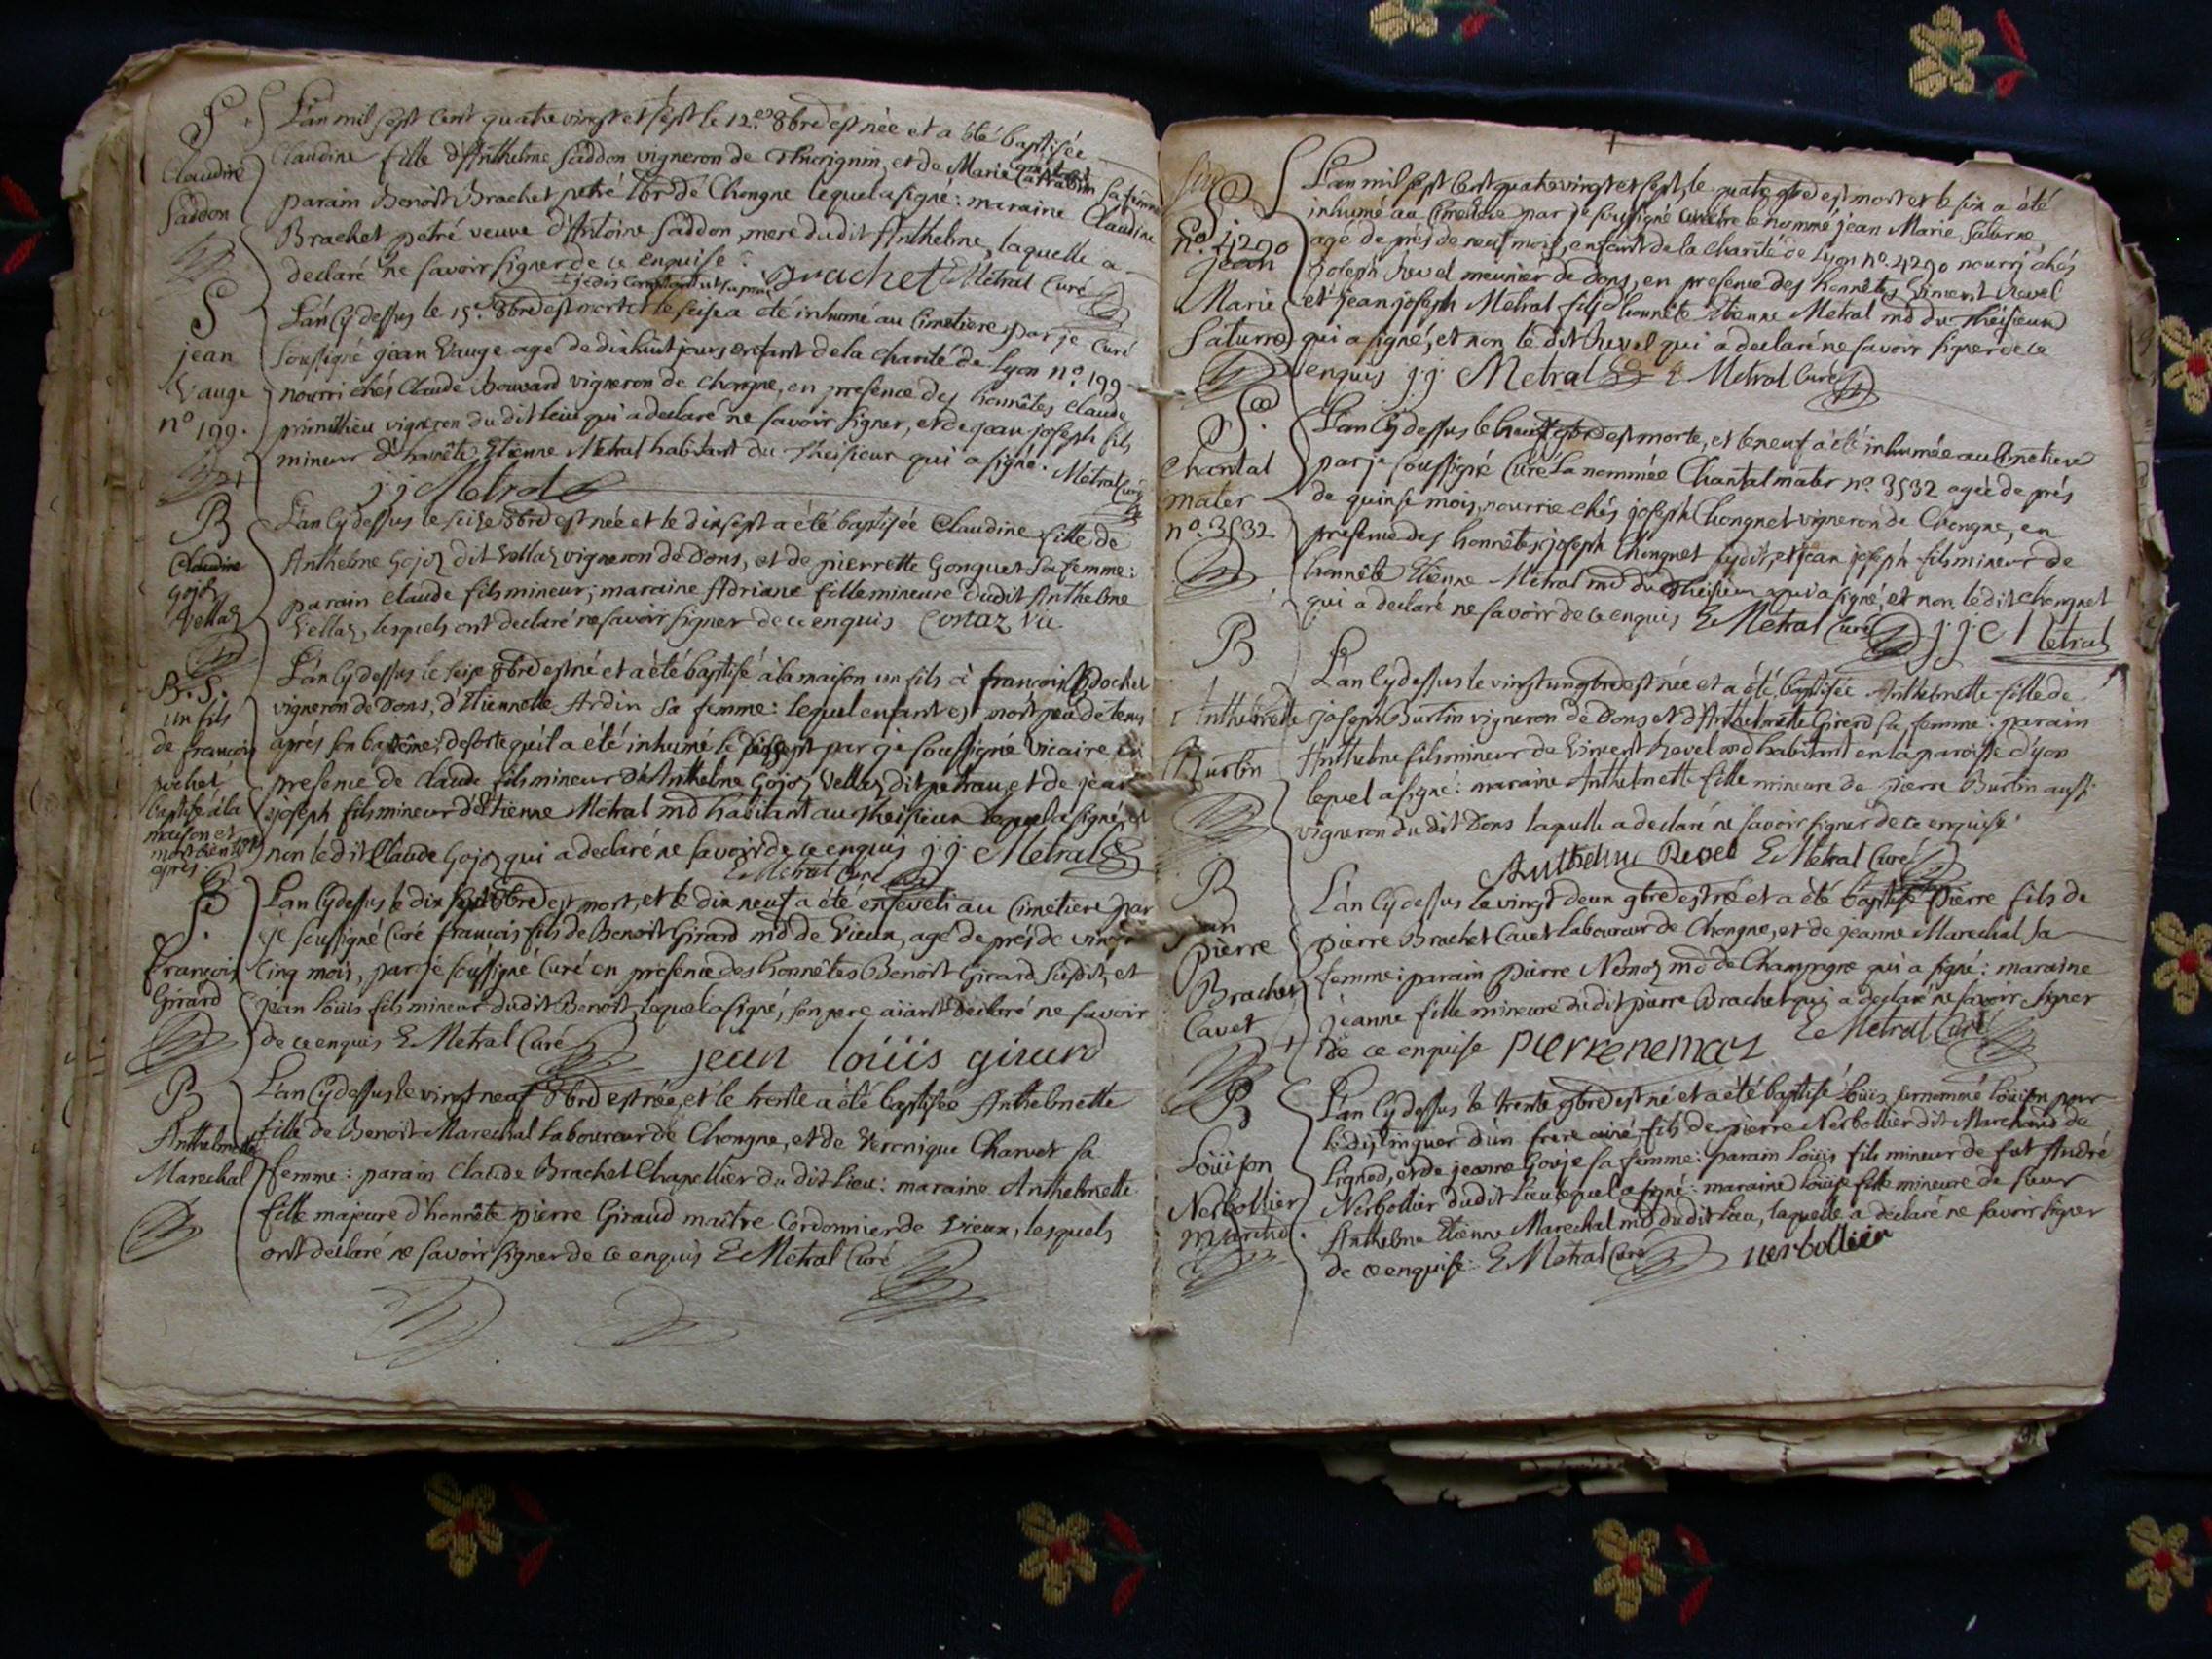 S. S L'an mil sept cent quatre vingt et sept le 12.e 8bre est née et a été baptisée
Claudine Claudine fille d'Anthelme Saddon vigneron de Thurignin, et de Marie Carrabin sa femme
Saddon parain Benoît Brachet petré lbr de Chongne lequel a signé: maraine Claudine
Brachet petré veuve d'Antoine Saddon, mere du dit Anthelme, laquelle a
declaré ne savoir signer de ce enquise. Brachet E Métral Curé
S L'an cy dessus le 15.e 8bre est mort et le seise a été inhumé au Cimetiere par je Curé
jean soussigné jean Vauge agé de dix huit jours enfant de la charité de Lyon no. 199
Vauge nourri chés Claude bouvard vigneron de Chongne, en presence des honnêtes Claude
no 199. primillieu vigneron du dit lieu qui a declaré ne savoir signer, et de jean joseph fils
mineur d'honnête Etienne Métral habitant du Theisieur qui a signé. Métral Curé
j.j Metral
B L'an cy dessus le seize 8bre est née et le dix sept a été baptisée Claudine fille de
Claudine Anthelme Gojoz dit Vellaz vigneron de Dons, et de pierrette Gonguet sa femme:
Gojoz parain Claude fils mineur; maraine Adriane fille mineure du dit Anthelme
Vellaz Vellaz, lesquels ont declaré ne savoir signer de ce enquis Costaz Vic
B. S. L'an cy dessus le seize 8bre est né et a été baptisé à la maison un fils à françois pochet
un fils vigneron de Dons, d'Etiennette Ardin sa femme: lequel enfant est mort peu de tems
de françois aprés son batême; de sorte qu'il a été inhumé le dix sept par je soussigné vicaire en
pochet presence de Claude fils mineur d'Anthelme Gojoz Vellaz dit petrau, et de jean
baptisé à la joseph fils mineur d'Etienne Metral md habitant au Theisieur lequel a signé, et
maison et mort bientôt non le dit Claude Gojoz qui a declaré ne savoir de ce enquis j.j. Metral
aprés. E Metral Curé
S.e L'an cy dessus le dix sept 8bre est mort, et le dix neuf a été enseveli au Cimetiere par
je soussigné Curé françois fils de Benoît Girard md de Vieux, agé de prés de vingt
françois cinq mois, par je soussigné Curé en presence des honnêtes Benoît Girard susdit, et
Girard jean Louis fils mineur du dit Benoît, lequel a signé, son pere aiant declaré ne savoir
de ce enquis E Metral Curé jean loüis girard
B L'an cy dessus le vingt neuf 8bre est née, et le trente a été baptisée Anthelmette
Anthelmette fille de Benoît Marechal laboureur de Chongne, et de Veronique Charvet sa
Marechal femme: parain Claude Brachet Chapellier du dit lieu: maraine Anthelmette
fille majeure d'honnête pierre Giraud maître Cordonnier de Vieux, lesquels
ont declaré ne savoir signer de ce enquis E Metral Curé
S L'an mil sept cent quatre vingt et sept, le quatre 9bre est mort et le six a été
inhumé au Cimetiere par je soussigné Curé le nommé jean Marie Saturne,
no. 4290 agé de prés de neuf mois, enfant de la charité de Lyon no. 4290 nourri chés
jean joseph revel meunier de Dons, en presence des honnêtes Vincent revel
Marie et jean joseph Metral fils d'honnête Etienne Metral md du Theisieur
Saturne qui a signé, et non le dit revel qui a declaré ne savoir signer de ce
enquis j.j. Metral E Metral Curé
S.e L'an cy dessus le huit 9bre est morte, et le neuf a été inhumée au Cimetiere
Chantal par je soussigné Curé la nommée Chantal mater no. 3532 agée de prés
mater de quinse mois, nourrie chés joseph Chongnet vigneron de Chongne, en
no. 3532 presence des honnêtes joseph Chongnet susdit, et jean joseph fils mineur de
honnête Etienne Metral md du Theisieur qui a signé, et non le dit chongnet
qui a declaré ne savoir de ce enquis E Metral Curé j.j. Metral
B L'an cy dessus le vingt un 9bre est née et a été baptisée Anthelmette fille de
Anthelmette joseph Burtin vigneron de Dons et d'Anthelmette Girerd sa femme: parain
Burtin Anthelme fils mineur de Vincent revel md habitant en la paroisse d'yon
lequel a signé: maraine Anthelmette fille mineure de pierre Burtin aussi
vigneron du dit Dons laquelle a declaré ne savoir signer de ce enquise.
Anthelme Revel E Metral Curé
B L'an cy dessus le vingt deux 9bre est né et a été baptisé pierre fils de
pierre pierre Brachet Cavet laboureur de Chongne, et de jeanne Marechal sa
Brachet femme: parain pierre Nemoz md de Champagne qui a signé: maraine
Cavet jeanne fille mineure du dit pierre Brachet qui a declaré ne savoir signer
de ce enquise pierre nemoz E Metral Curé
B L'an cy dessus le trente 9bre est né et a été baptisé loüis surnommé loüison pour
le distinguer d'un frere ainé, fils de pierre Nerbollier dit Marchand de
Loüison Lignod, et de jeanne Gouje sa femme: parain loüis fils mineur de fut André
Nerbollier Nerbollier du dit lieu lequel a signé: maraine loüise fille mineure de sieur
Marchd. Anthelme Etienne Marechal md du dit lieu, laquelle a declaré ne savoir signer
de ce enquise. E Metral Curé nerbollier